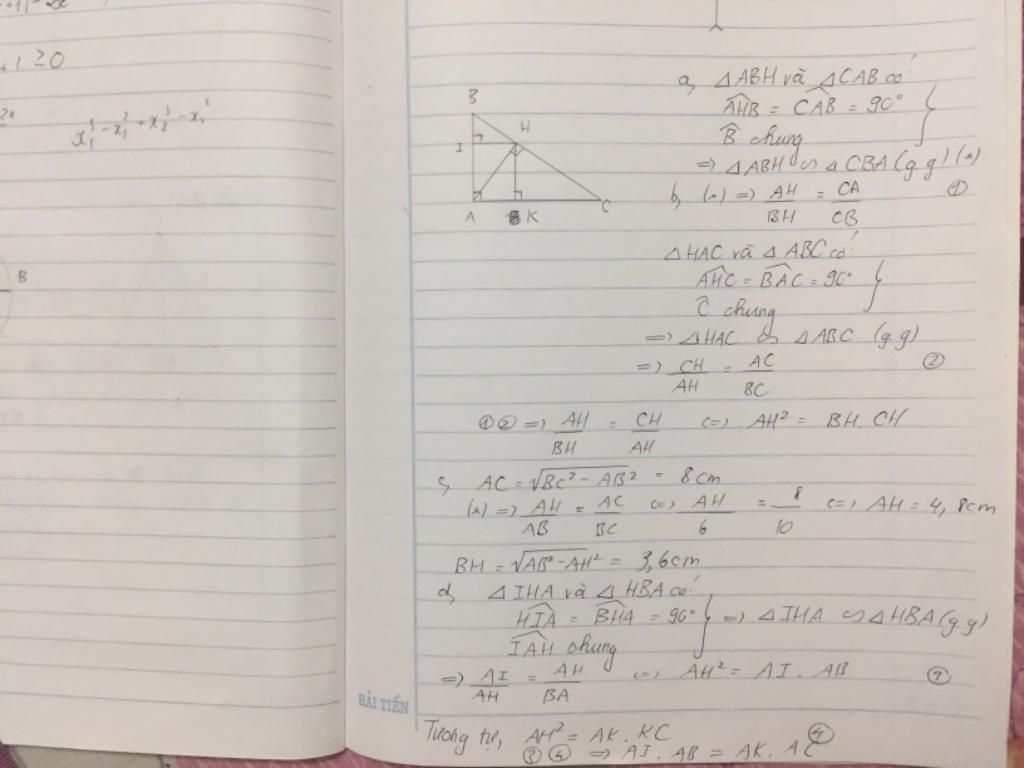 +1 ≥ 0
x₁³ - x₁² = x₂³ - x₂²
B
B
H
I
A
K
C
a, △ABH và △CAB có:
AHB = CAB = 90°
B chung
=> △ABH ∽ △CBA (g.g) (*)
b, (*) => AH/BH = CA/CB ①
△HAC và △ABC có:
AHC = BAC = 90°
C chung
=> △HAC ∽ △ABC (g.g)
=> CH/AH = AC/BC ②
① ② => AH/BH = CH/AH <=> AH² = BH. CH
c, AC = √BC² - AB² = 8cm
(*) => AH/AB = AC/BC <=> AH/6 = 8/10 <=> AH = 4,8cm
BH = √AB² - AH² = 3,6cm
d, △IHA và △HBA có:
HIA = BHA = 90° => △IHA ∽ △HBA (g.g)
IAH chung
=> AI/AH = AH/BA <=> AH² = AI. AB ③
HẢI TIẾN
Tương tự, AH² = AK. KC ④
③ ④ => AI. AB = AK. AC